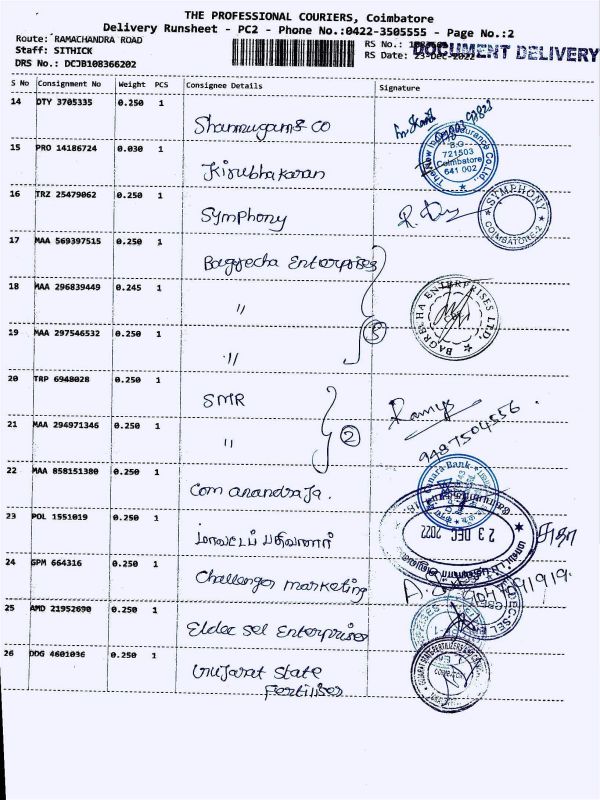 THE PROFESSIONAL COURIERS, Coimbatore
Delivery Runsheet - PC2 - Phone No.:0422-3505555 - Page No.:2
Route: RAMACHANDRA ROAD
RS No.:
DOCUMENT DELIVERY
Staff: SITHICK
RS Date: 23-Dec-2022
DRS No.: DCJB108366202
S No Consignment No Weight PCS Consignee Details Signature
14 DTY 3705335 0.250 1
Shanmugam & CO
15 PRO 14186724 0.030 1
Kirubhakaran
721503
Coimbatore
641 002
16 TRZ 25479062 0.250 1
Symphony
SYMPHONY
COIMBATORE-2
17 MAA 569397515 0.250 1
Bagrecha Enterprises
18 MAA 296839449 0.245 1
"
BAGRECHA ENTERPRISES LTD.
19 MAA 297546532 0.250 1
"
3
20 TRP 6948028 0.250 1
SMR
Ramya
21 MAA 294971346 0.250 1
"
2
9487504556
22 MAA 858151380 0.250 1
Com anandraja.
Canara Bank
23 POL 1551019 0.250 1
மாவட்டப் பதிவாளர்
23 DEC 2022
24 GPM 664316 0.250 1
Challenger marketing
25 AMD 21952690 0.250 1
Eldec sel Enterprises
26 DDG 4601036 0.250 1
Gujarat State
Fertiliser